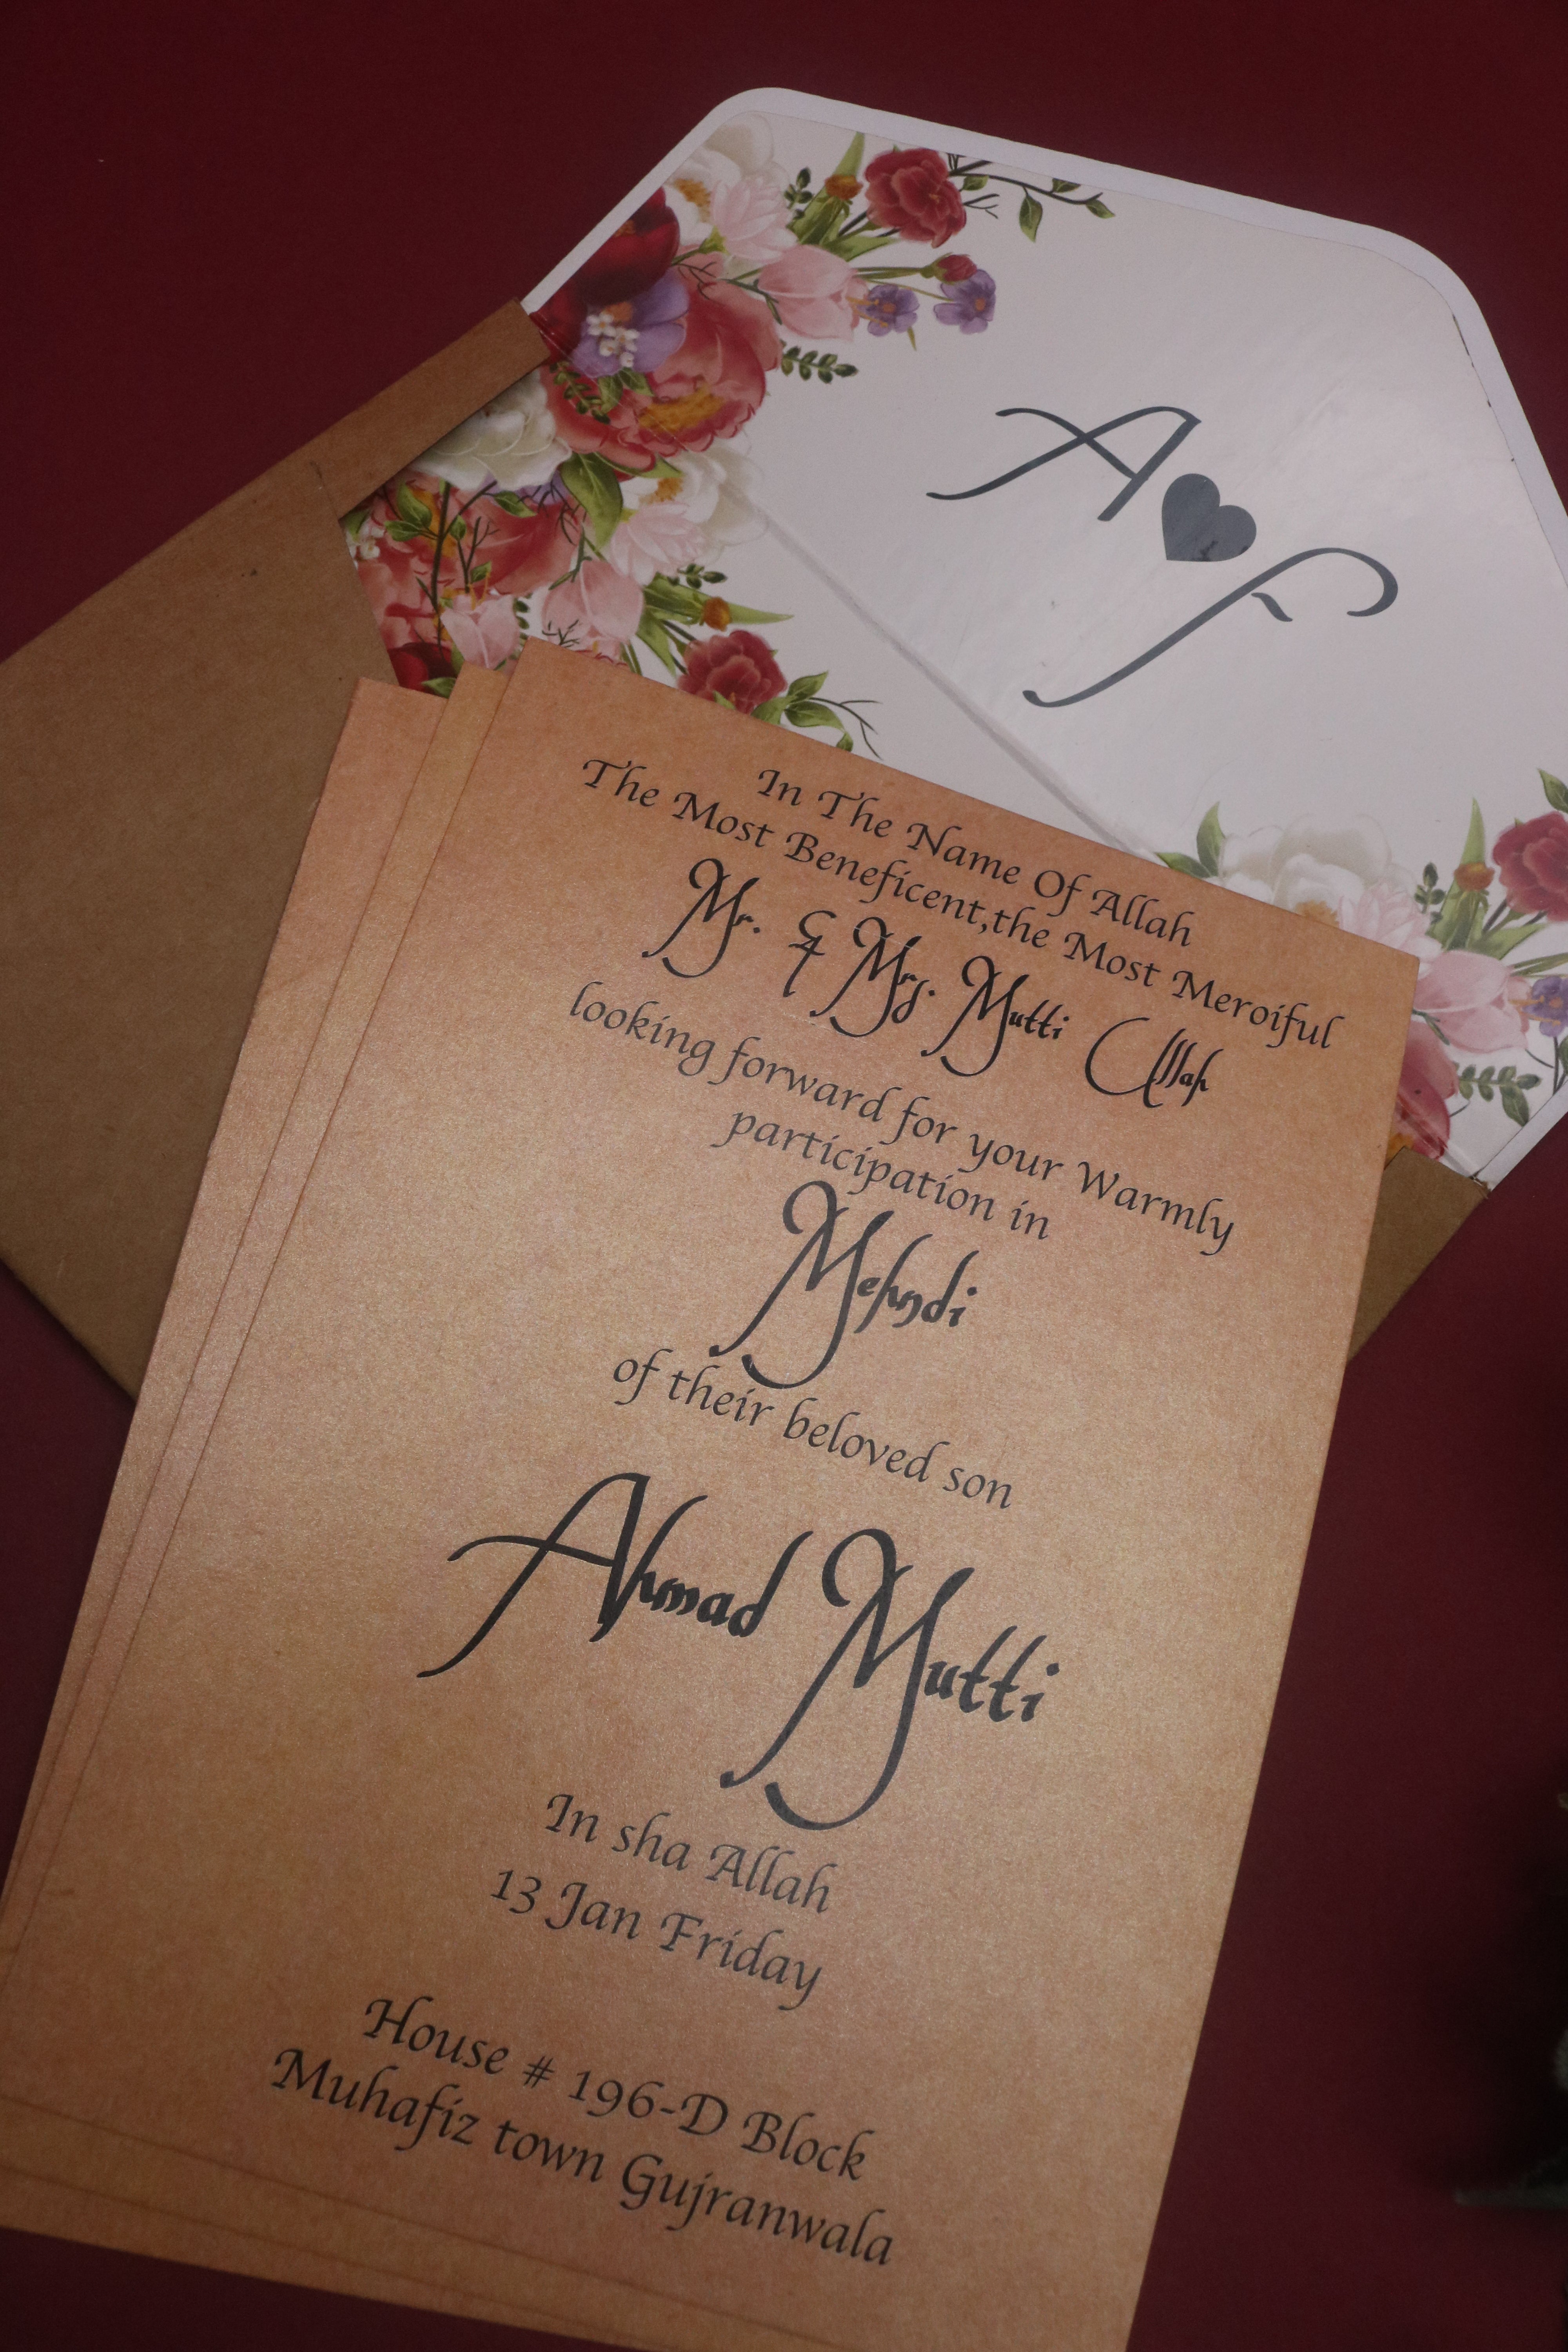 A
F
In The Name Of Allah
The Most Beneficent,the Most Meroiful
Mr. & Mrs. Mutti Ullah
looking forward for your Warmly
participation in
Mehndi
of their beloved son
Ahmad Mutti
In sha Allah
13 Jan Friday
House # 196-D Block
Muhafiz town Gujranwala